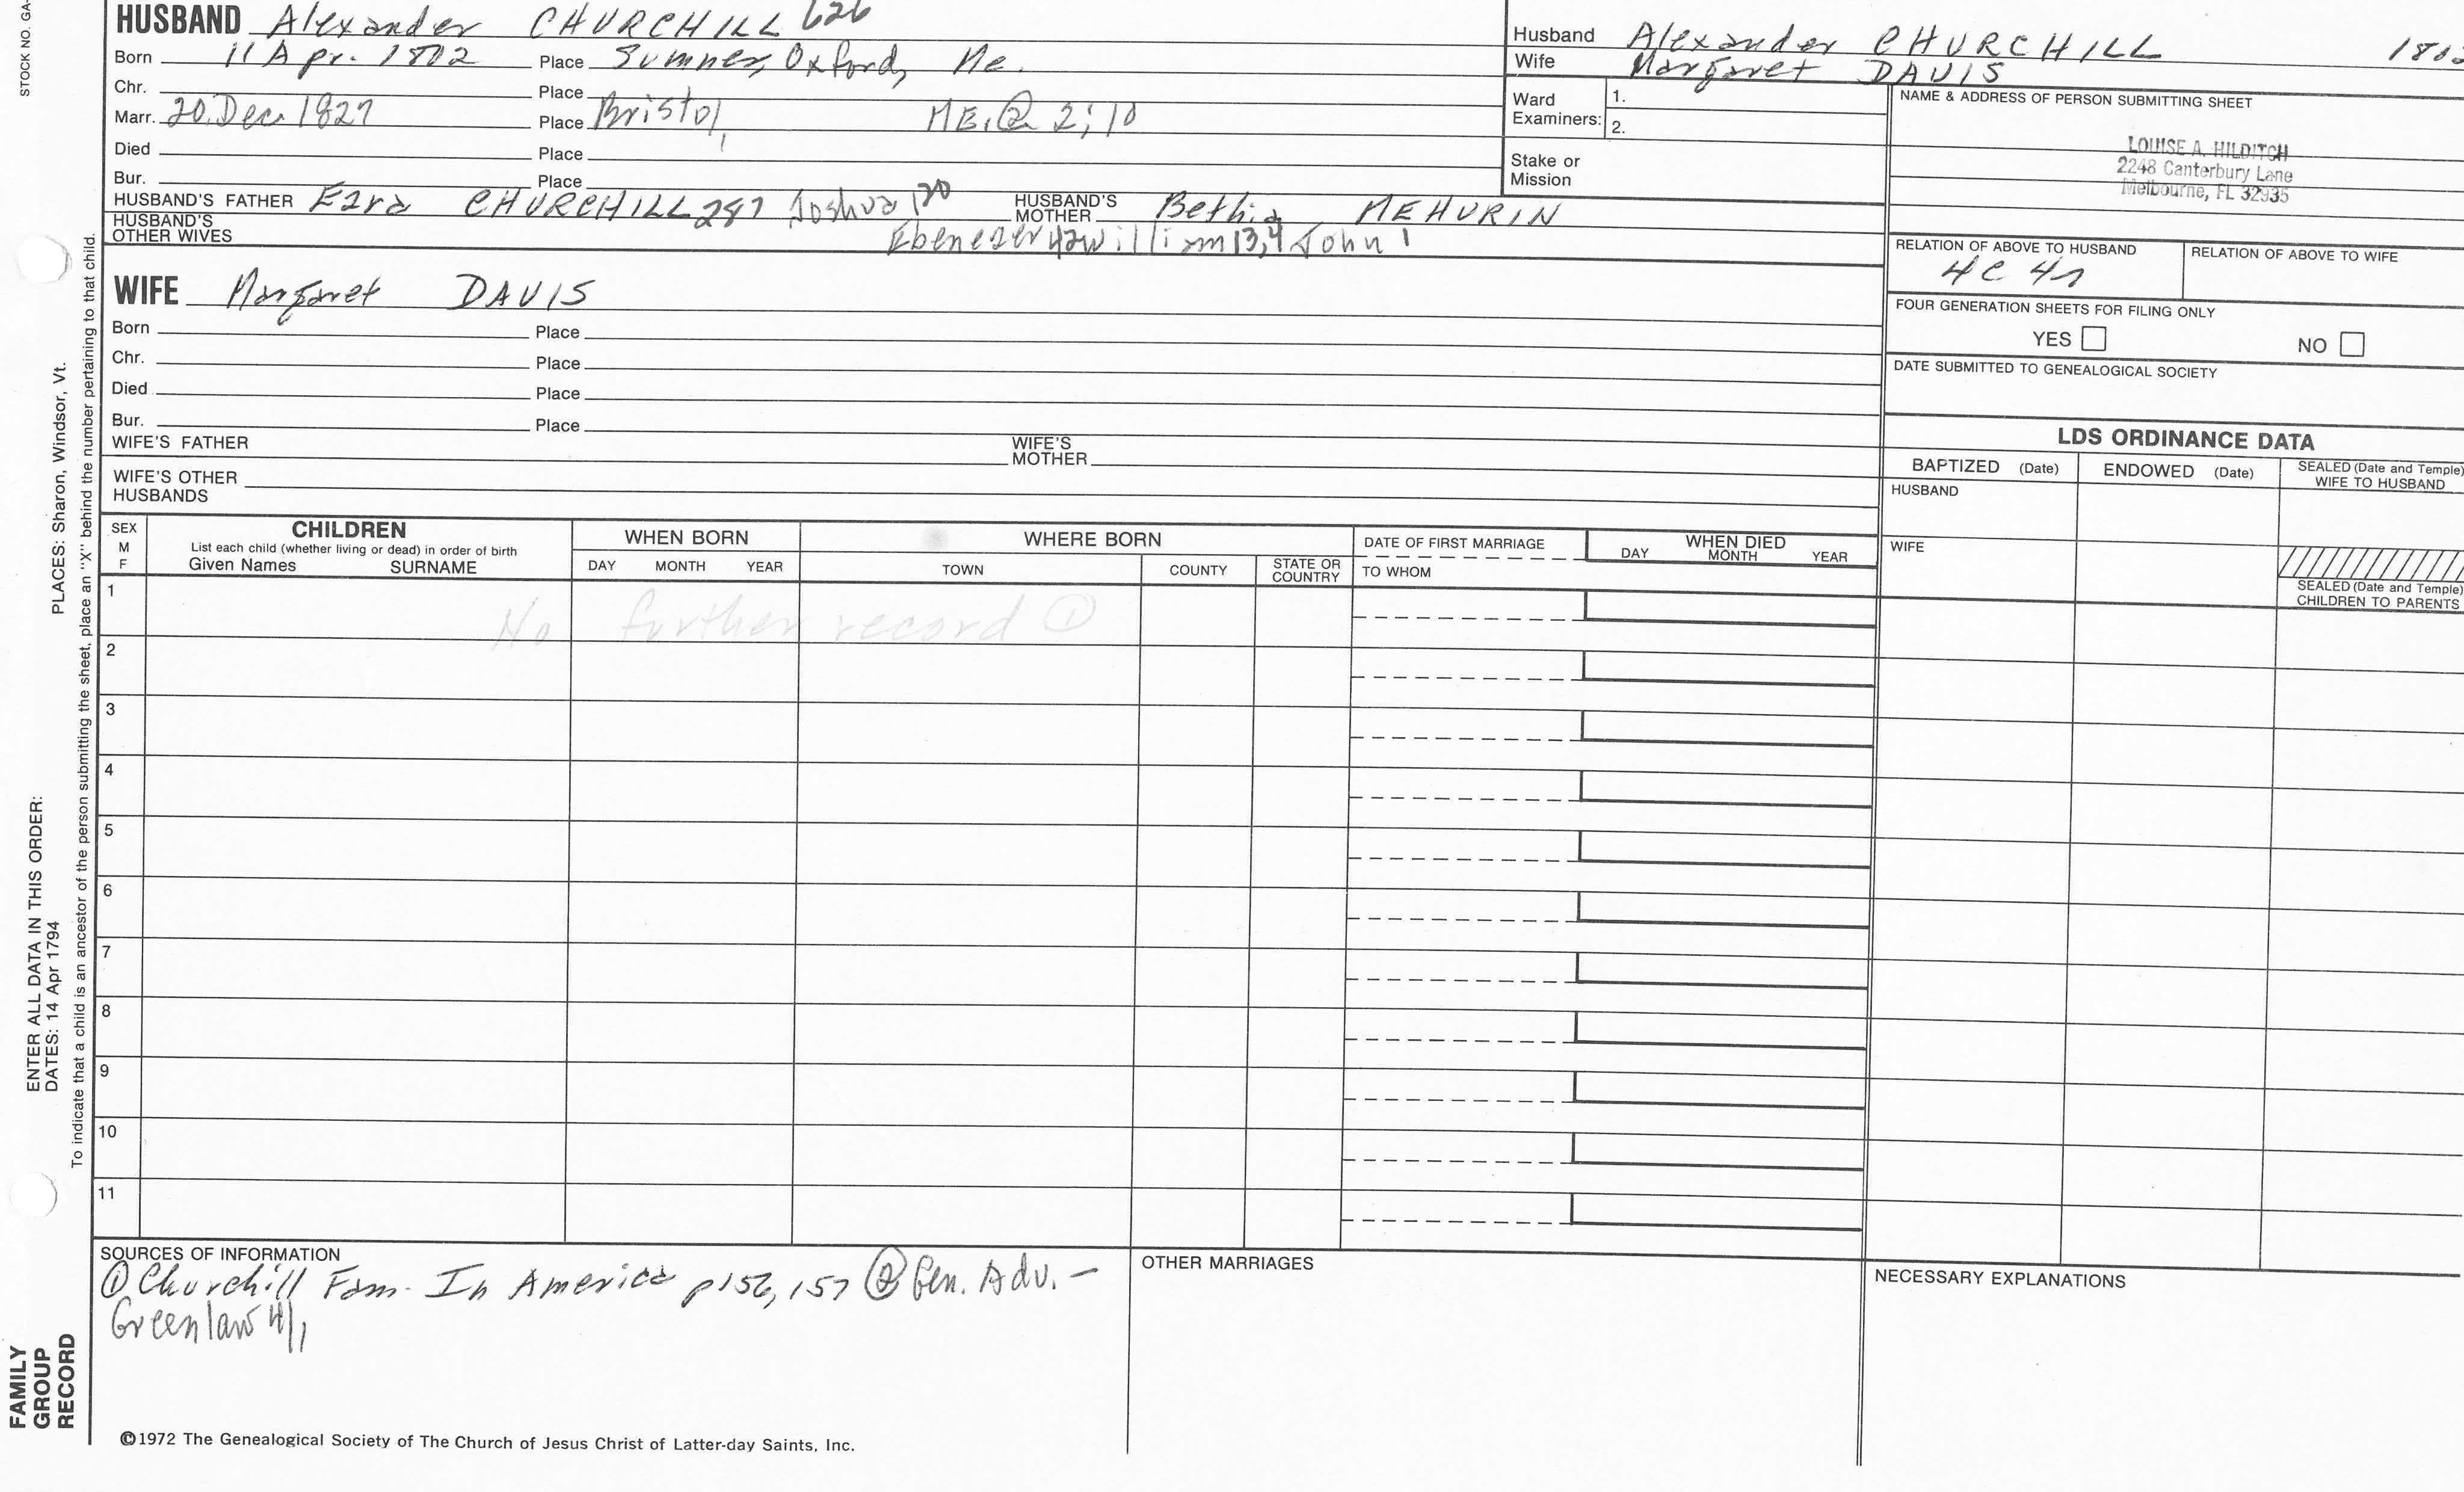 STOCK NO. GA-
HUSBAND Alexander CHURCHILL 626
Born 11 Apr. 1802 Place Sumner, Oxford, Me.
Chr. Place
Marr. 20 Dec 1827 Place Bristol, ME, ② 2;10
Died Place
Bur. Place
HUSBAND'S FATHER Ezra CHURCHILL 287 Joshua 120 HUSBAND'S MOTHER Bethia MEHURIN
HUSBAND'S OTHER WIVES Ebenezer 42 William 13,4 John 1
WIFE Margaret DAVIS
Born Place
Chr. Place
Died Place
Bur. Place
WIFE'S FATHER WIFE'S MOTHER
WIFE'S OTHER HUSBANDS
Husband Alexander CHURCHILL 1802
Wife Margaret DAVIS
Ward Examiners: 1.
2.
Stake or Mission
NAME & ADDRESS OF PERSON SUBMITTING SHEET
LOUISE A. HILDITCH
2248 Canterbury Lane
Melbourne, FL 32935
RELATION OF ABOVE TO HUSBAND RELATION OF ABOVE TO WIFE
4C 4r
FOUR GENERATION SHEETS FOR FILING ONLY
YES NO
DATE SUBMITTED TO GENEALOGICAL SOCIETY
LDS ORDINANCE DATA
BAPTIZED (Date) ENDOWED (Date) SEALED (Date and Temple) WIFE TO HUSBAND
HUSBAND
WIFE
SEALED (Date and Temple) CHILDREN TO PARENTS
SEX M F
CHILDREN
List each child (whether living or dead) in order of birth
Given Names SURNAME
WHEN BORN
DAY MONTH YEAR
WHERE BORN
TOWN COUNTY STATE OR COUNTRY
DATE OF FIRST MARRIAGE
TO WHOM
WHEN DIED
DAY MONTH YEAR
1
No further record ①
2
3
4
5
6
7
8
9
10
11
SOURCES OF INFORMATION
① Churchill Fam. In America p156, 157 ② Gen. Adv. -
Greenlaw 4/1
OTHER MARRIAGES
NECESSARY EXPLANATIONS
©1972 The Genealogical Society of The Church of Jesus Christ of Latter-day Saints, Inc.
FAMILY
GROUP
RECORD
ENTER ALL DATA IN THIS ORDER:
DATES: 14 Apr 1794 PLACES: Sharon, Windsor, Vt.
To indicate that a child is an ancestor of the person submitting the sheet, place an "X" behind the number pertaining to that child.